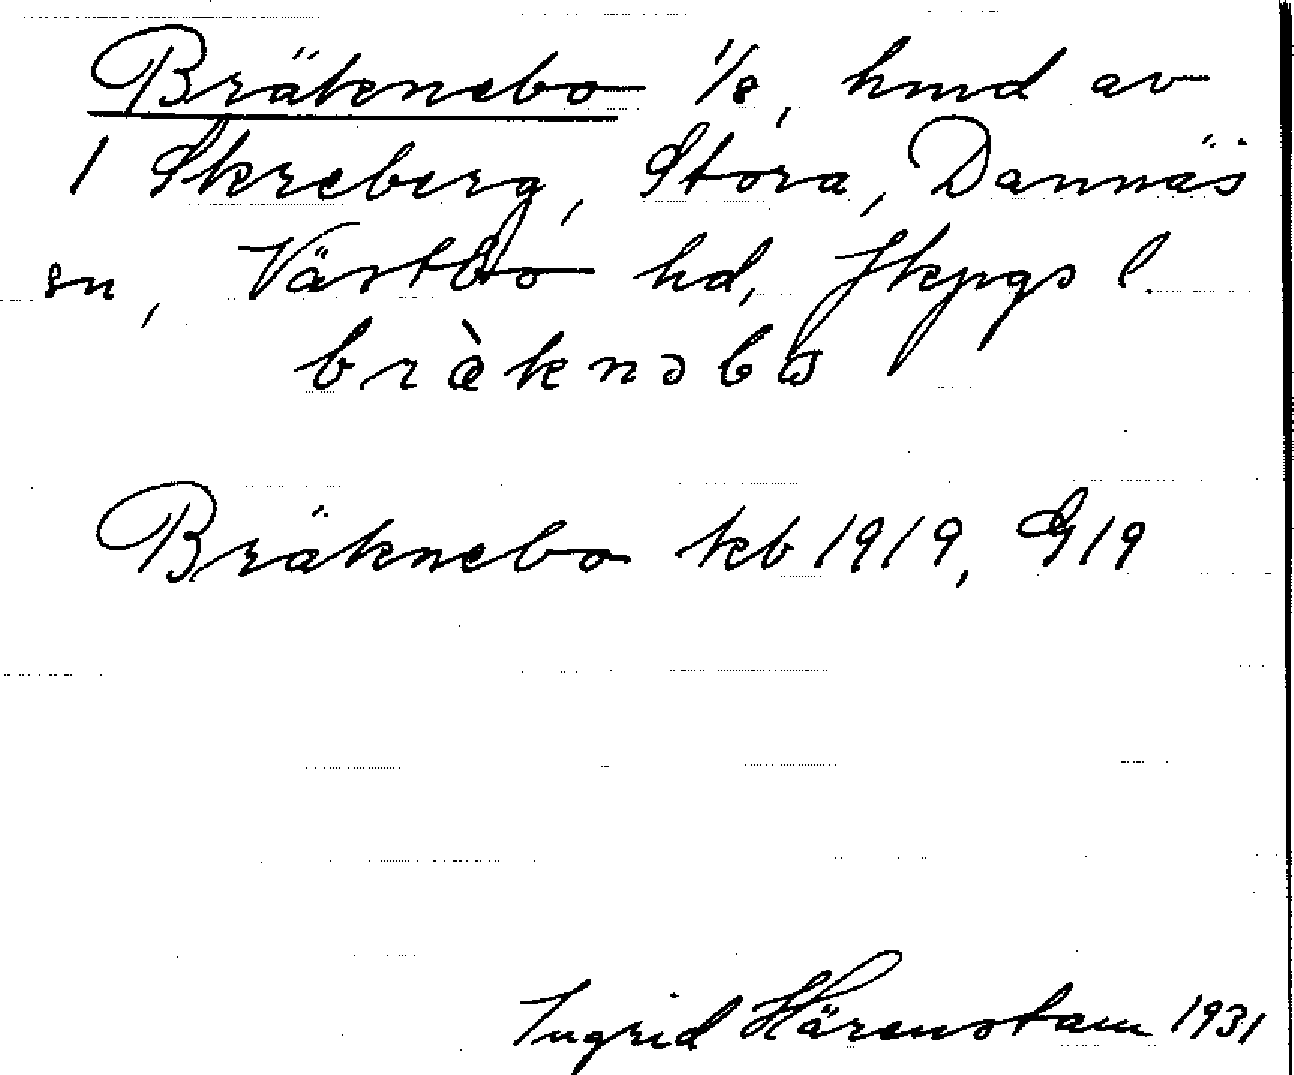 Bräknebo 1/8, hmd av
1 Skreberg, Stora, Dannäs
sn, Västbo hd, Jkpgs l.
brὰknəbω
Bräknebo kb 1919, G19
Ingrid Härenstam 1931